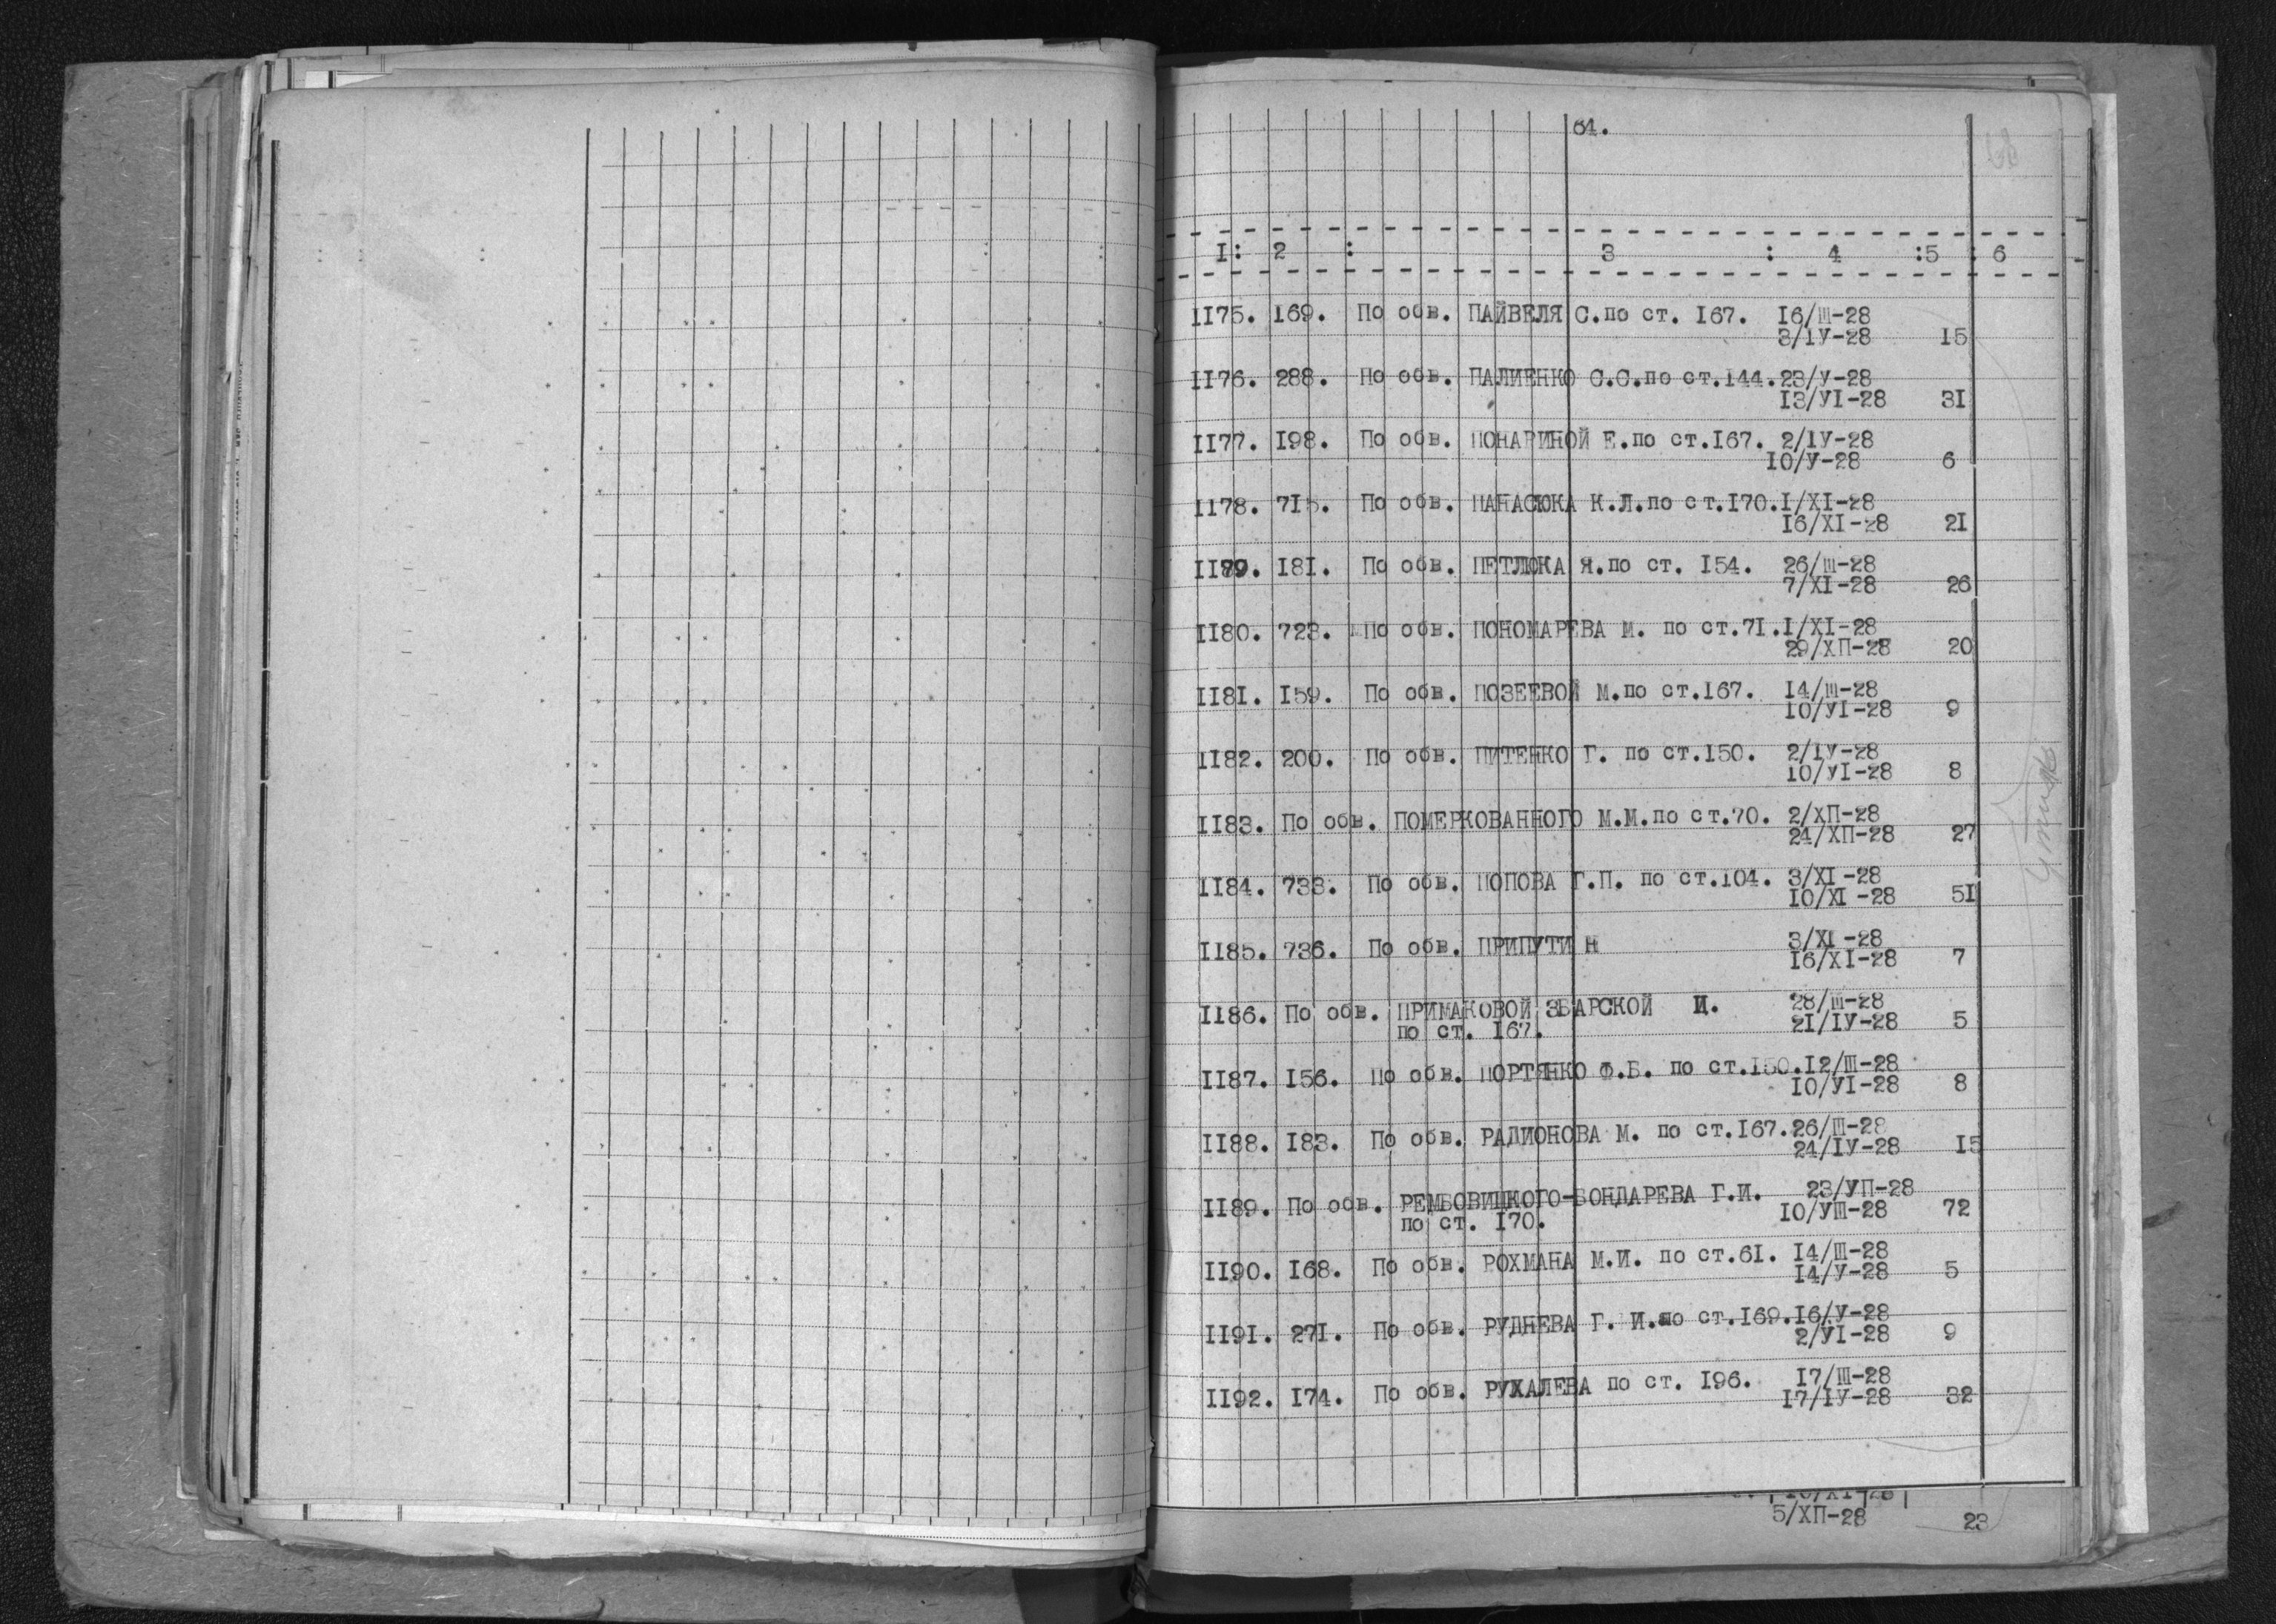 61.
I: 2 : 3 : 4 :5 : 6
II75. I69. По обв. ПАЙВЕЛЯ С.по ст. I67. I6/Ш-28
3/IУ-28 I5
II76. 288. По обв. ПАЛИЕНКО С.С.по ст.I44.23/У-28
I3/УI-28 3I
II77. I98. По обв. ПОНАРИНОЙ Е.по ст.I67. 2/IУ-28
IO/У-28 6
II78. 7I5. По обв. ПАНАСЮКА К.Л.по ст.I70.I/XI-28
I6/XI-28 2I
II79. I8I. По обв. ПЕТЛЮКА Я.по ст. I54. 26/Ш-28
7/XI-28 26
II80. 723. По обв. ПОНОМАРЕВА М. по ст.7I.I/XI-28
29/ХП-28 20
II8I. I59. По обв. ПОЗЕЕВОЙ М.по ст.I67. I4/Ш-28
IO/УI-28 9
II82. 200. По обв. ПИТЕНКО Г. по ст.I50. 2/IУ-28
IO/УI-28 8
II83. По обв. ПОМЕРКОВАННОГО М.М.по ст.70. 2/ХП-28
24/ХП-28 27
II84. 733. По обв. ПОПОВА Г.П. по ст.I04. 3/XI-28
IO/XI-28 5I
II85. 736. По обв. ПРИПУТИ Н 3/XI-28
I6/XI-28 7
II86. По обв. ПРИМАКОВОЙ ЗБАРСКОЙ Ц. 28/Ш-28
по ст. I67. 2I/IУ-28 5
II87. I56. По обв. ПОРТЯНКО Ф.Б. по ст.I50.I2/Ш-28
IO/УI-28 8
II88. I83. По обв. РАДИОНОВА М. по ст.I67.26/Ш-28
24/IУ-28 I5
II89. По обв. РЕМБОВИЦКОГО-БОНДАРЕВА Г.И. 23/УП-28
по ст. I70. IO/УШ-28 72
II90. I68. По обв. РОХМАНА М.И. по ст.6I. I4/Ш-28
I4/У-28 5
II9I. 27I. По обв. РУДНЕВА Г. И.по ст.I69.I6/У-28
2/УI-28 9
II92. I74. По обв. РУХАЛЕВА по ст. I96. I7/Ш-28
I7/IУ-28 32
5/ХП-28 23